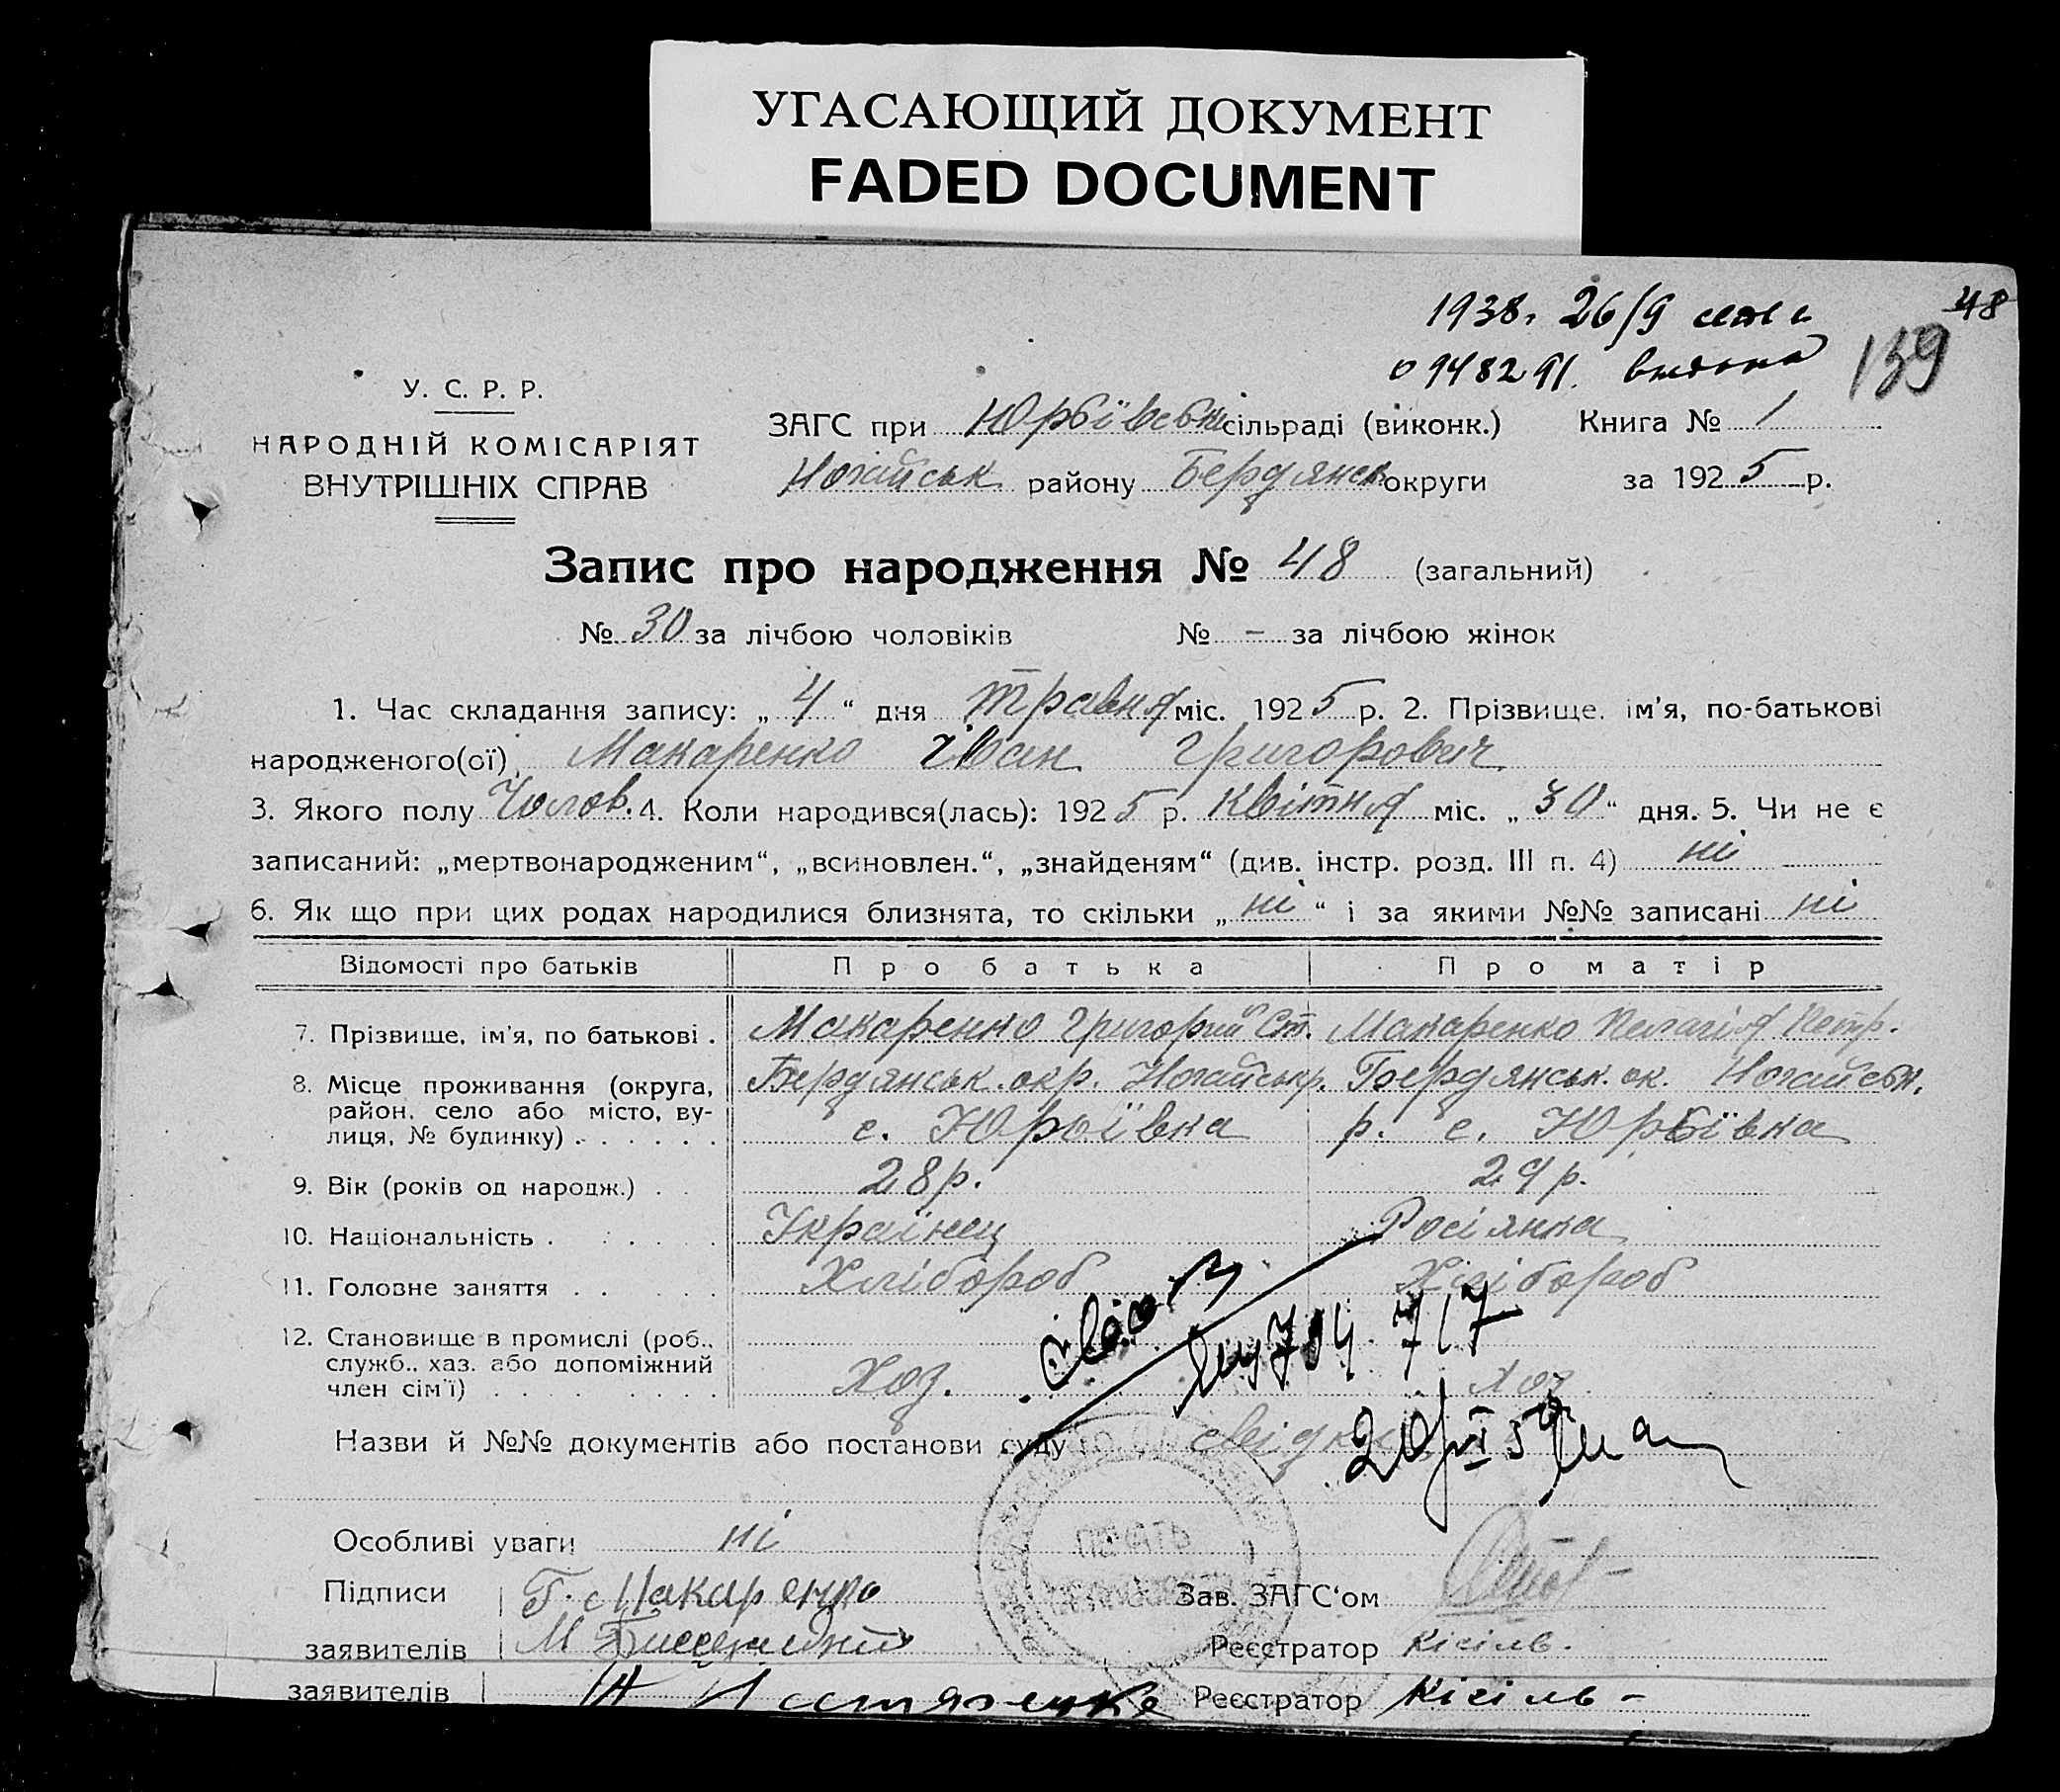 УГАСАЮЩИЙ ДОКУМЕНТ
FADED DOCUMENT
1938. 26/9
48
0948291. видано
139
У. С. Р. Р.
НАРОДНІЙ КОМІСАРІЯТ
ВНУТРІШНІХ СПРАВ
ЗАГС при Юрбївській сільраді (виконк.) Книга № 1
Ногайськ району Бердянськ округи за 1925 р.
Запис про народження № 48 (загальний)
№ 30 за лічбою чоловіків № – за лічбою жінок
1. Час складання запису: „4“ дня травня міс. 1925 р. 2. Прізвище, ім'я, по-батькові
народженого(ої) Макаренко Іван Григорович
3. Якого полу Чолов. 4. Коли народився(лась): 1925 р. Квітня міс. „30“ дня. 5. Чи не є
записаний: „мертвонародженим“, „всиновлен.“, „знайденям“ (див. інстр. розд. III п. 4) ні
6. Як що при цих родах народилися близнята, то скільки „ні“ і за якими №№ записані ні
Відомості про батьків Про батька Про матір
7. Прізвище, ім'я, по батькові . Макаренко Григорий Ст. Макаренко Пелагія Петр.
8. Місце проживання (округа, Бердянськ. окр. Ногайськ р. Бердянськ. ок. Ногайськ.
район, село або місто, ву-
лиця, № будинку) . . . . . . с. Юрбївка р. с. Юрбївка
9. Вік (років од народж.) . . 28 р. 29 р.
10. Національність . . . . . Українец Росіянка
11. Головне заняття . . . . . Хлібороб Хлібороб
12. Становище в промислі (роб.,
служб., хаз. або допоміжний
член сім'ї) . . . . . . . Хоз. Хоз.
Назви й №№ документів або постанови суду
Особливі уваги ні
Підписи Г. Макаренко Зав. ЗАГС'ом
заявителів М Реєстратор Кісіль.
заявителів Реєстратор Кісіль –